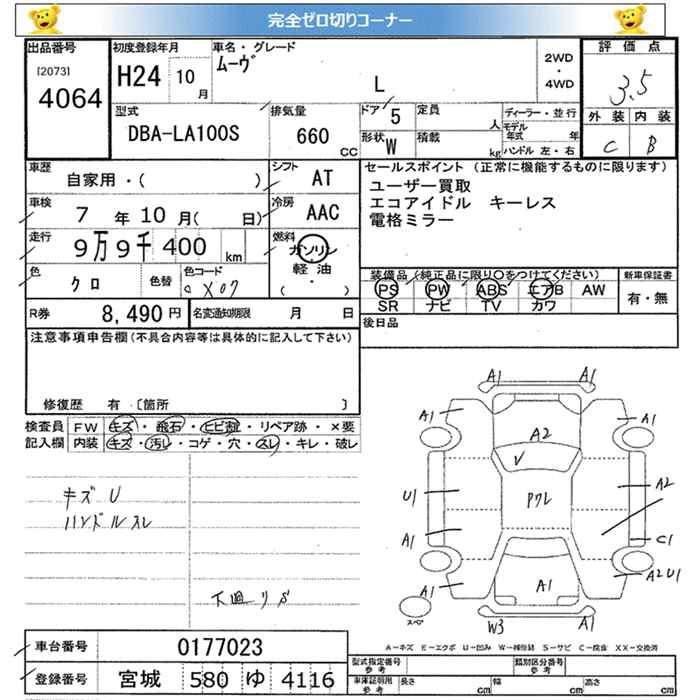 完全ゼロ切りコーナー
出品番号 初度登録年月 車名・グレード 評価点
[2073] 4064 H24 10月 ムーヴ L 2WD・4WD 3.5
型式 DBA-LA100S 排気量 660 CC ドア 5 定員 人 ディーラー・並行 外装 内装
形状 W 積載 kg モデル年式 年 C B
ハンドル 左・右
車歴 自家用・( ) シフト AT セールスポイント (正常に機能するものに限ります)
車検 7年10月( 日) 冷房 AAC ユーザー買取
エコアイドル キーレス
電格ミラー
走行 9万9千400 km 燃料 ガソリン 軽油 ( ・ )
色 クロ 色替 色コード X07 装備品(純正品に限り〇をつけてください) 新車保証書
PS PW ABS エアB AW 有・無
SR ナビ TV カワ
R券 8,490円 名変通知期限 月 日 後日品
注意事項申告欄(不具合内容等は具体的に記入して下さい)
修復歴 有・〔箇所 〕
検査員記入欄 FW キズ・飛石・ヒビ割・リペア跡・×要
内装 キズ・汚レ・コゲ・穴・スレ・キレ・破レ
キズU
ハンドルスレ
下廻りサ
A1 A1
A1 A1
A2
√
U1 Pクレ A2
A1 C1
A1 A1 A2U1
スペア W3 A1
A-キズ E-エクボ U-凹み W-補修跡 S-サビ C-腐食 XX-交換済
車台番号 0177023
型式指定番号 参考 類別区分番号 参考
登録番号 宮城 580 ゆ 4116
車庫証明用 参考 長さ cm 幅 cm 高さ cm